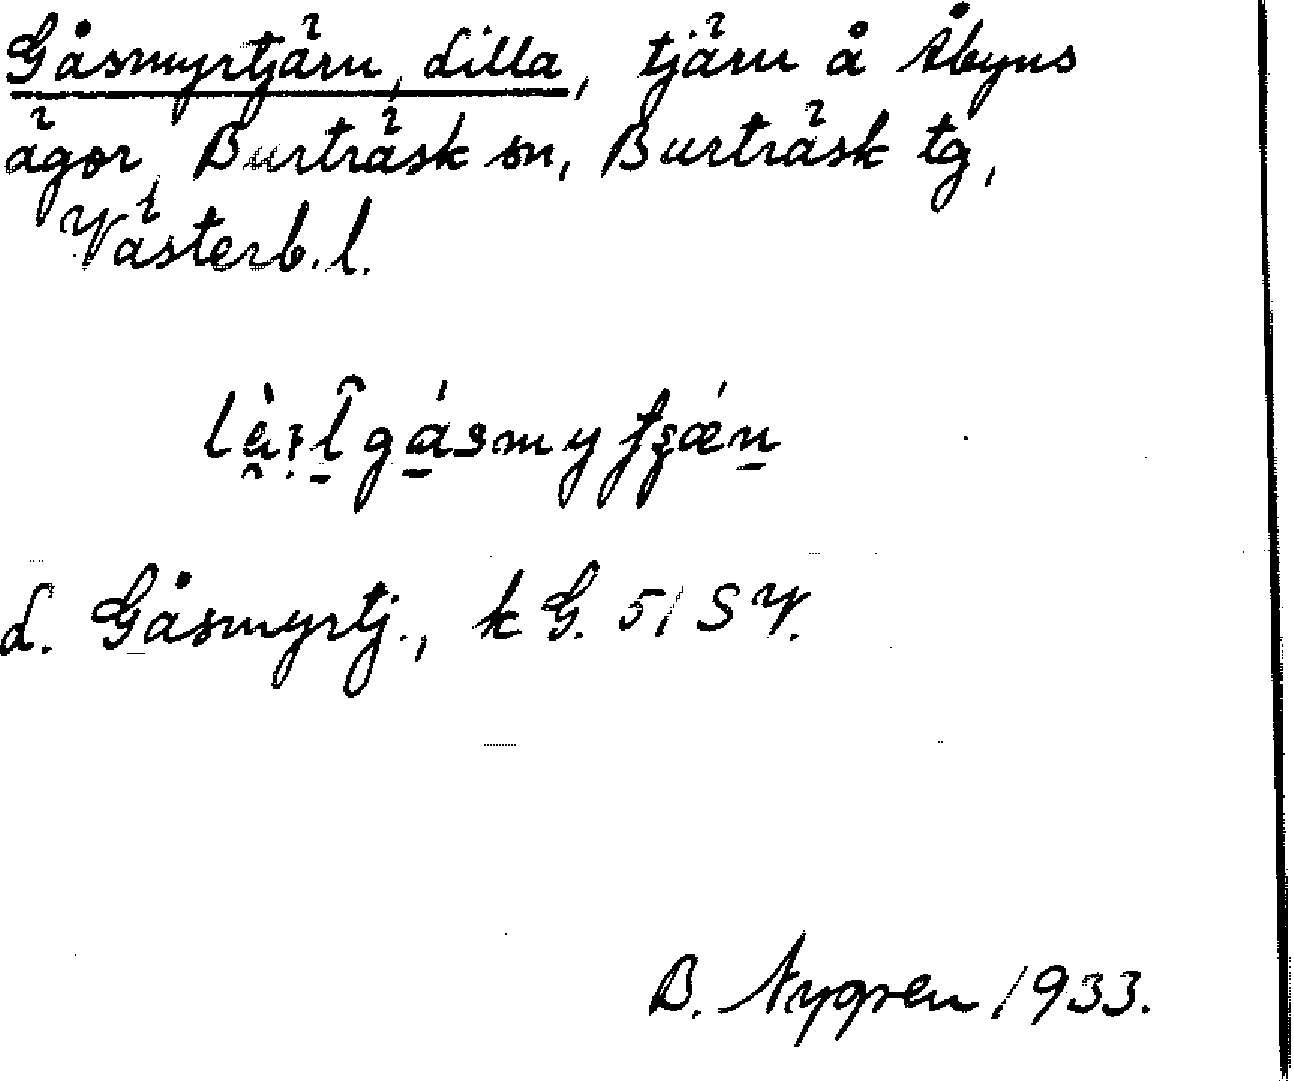 Gåsmyrtjärn, Lilla, tjärn å Åbyns
ägor, Burträsk sn, Burträsk tg,
Västerb. l.
L. Gåsmyrtj., k G. 51 SV.
B. Nygren 1933.